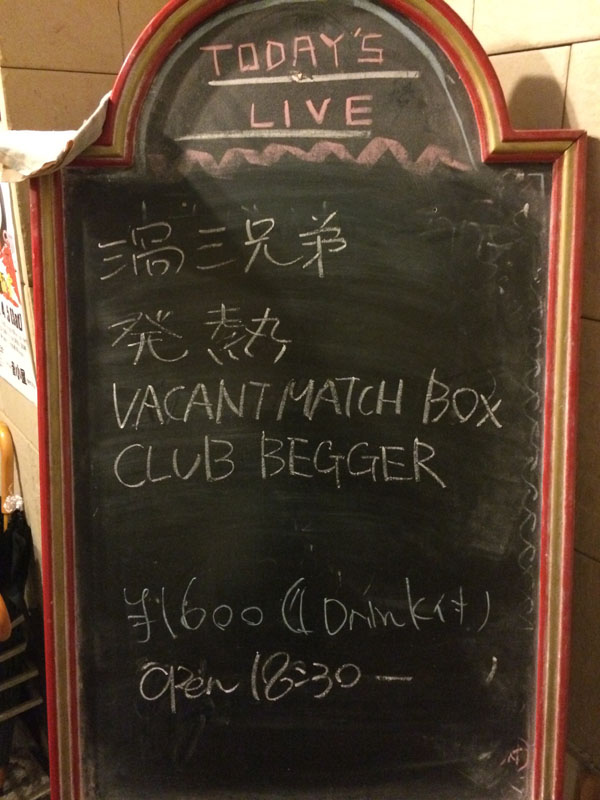 TODAY'S
LIVE
渦三兄弟
発熱
VACANT MATCH BOX
CLUB BEGGER
¥1600 (1 Drink付)
open 18:30 —